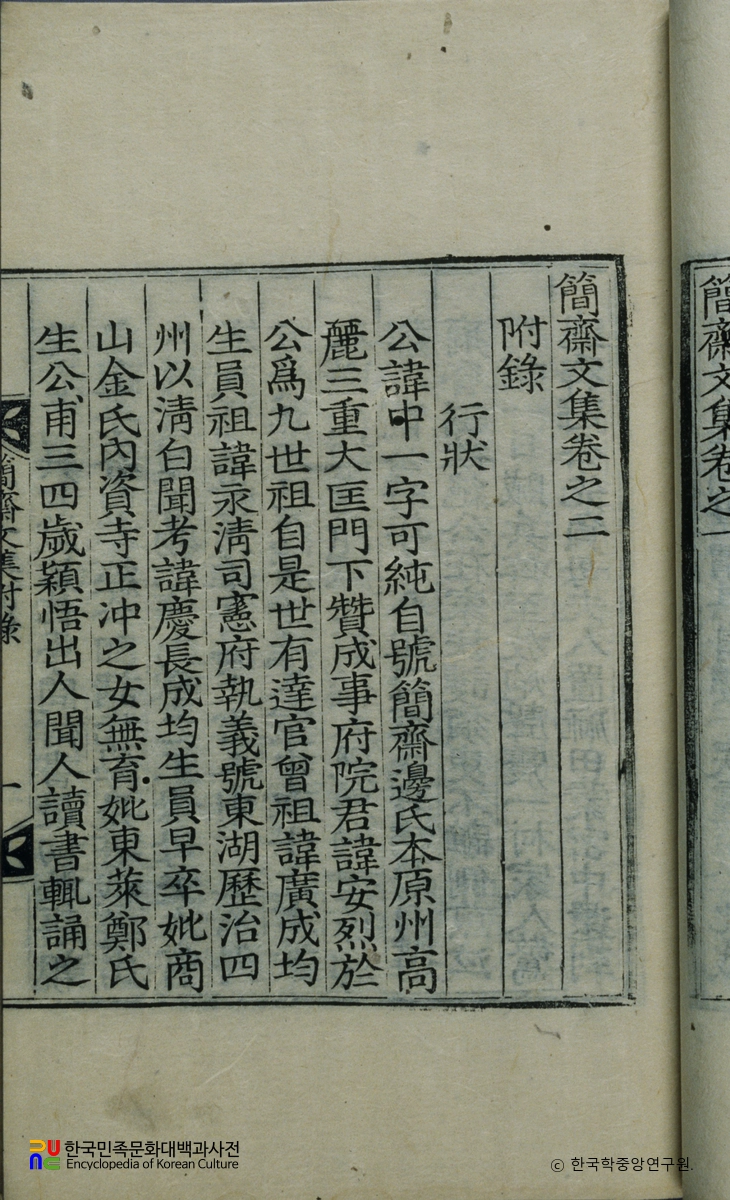 簡齋文集卷之一
簡齋文集卷之二
附錄
行狀
公諱中一字可純自號簡齋邊氏本原州高
麗三重大匡門下贊成事府院君諱安烈於
公爲九世祖自是世有達官曾祖諱廣成均
生員祖諱永淸司憲府執義號東湖歷治四
州以淸白聞考諱慶長成均生員早卒妣商
山金氏內資寺正冲之女無育妣東萊鄭氏
生公甫三四歲穎悟出人聞人讀書輒誦之
簡齋文集附錄
一
한국민족문화대백과사전
Encyclopedia of Korean Culture
© 한국학중앙연구원.